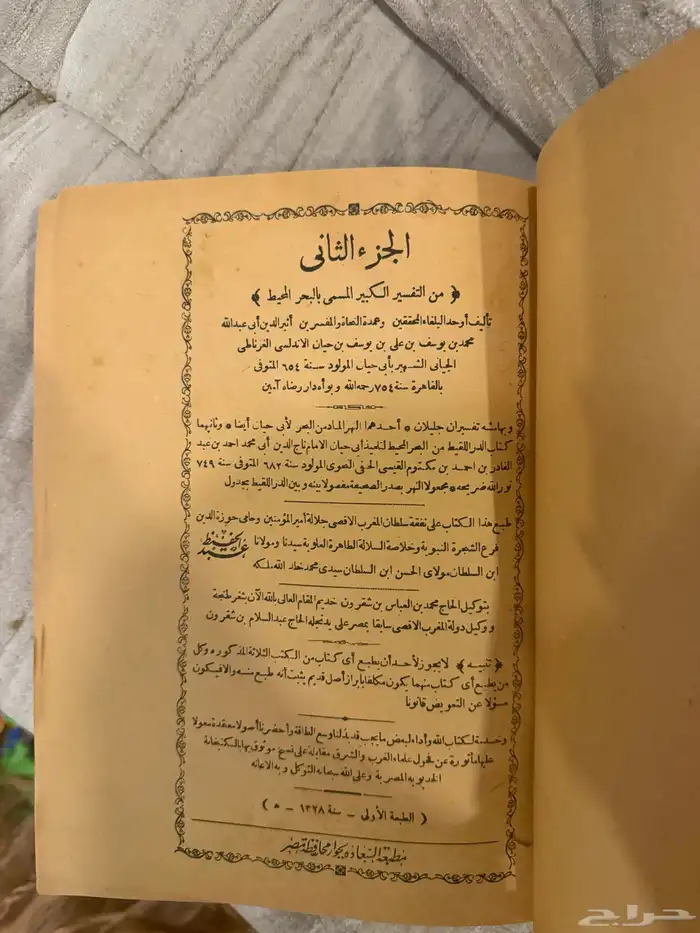 الجزء الثانى
﴿ من التفسير الكبير المسمى بالبحر المحيط ﴾
تأليف أوحد البلغاء المحققين وعمدة النحاة والمفسرين أثير الدين أبى عبدالله
محمد بن يوسف بن على بن يوسف بن حيان الاندلسى الغرناطى
الجيانى الشهير بأبى حيان المولود سنة ٦٥٤ المتوفى
بالقاهرة سنة ٧٥٤ رحمه الله وبوأه دار رضاه آمين
وبهامشه تفسيران جليلان * أحدهما النهر الماد من البحر لأبى حيان أيضا * وثانيهما
كتاب الدر اللقيط من البحر المحيط لتلميذ أبى حيان الامام تاج الدين أبى محمد احمد بن عبد
القادر بن احمد بن مكتوم القيسى الحنفى النحوى المولود سنة ٦٨٢ المتوفى سنة ٧٤٩
نور الله ضريحه * مجعولا النهر بصدر الصحيفة مفصولا بينه وبين الدر اللقيط بجدول
طبع هذا الكتاب على نفقة سلطان المغرب الاقصى جلالة أمير المؤمنين وحامى حوزة الدين
فرع الشجرة النبوية وخلاصة السلالة الطاهرة العلوية سيدنا ومولانا عبد الحفيظ
ابن السلطان مولاى الحسن ابن السلطان سيدى محمد خلد الله ملكه
بتوكيل الحاج محمد بن العباس بن شقرون خديم المقام العالى بالله الآن بثغر طنجة
ووكيل دولة المغرب الاقصى سابقا بمصر على يد نجله الحاج عبد السلام بن شقرون
﴿ تنبيه ﴾ لايجوز لأحد أن يطبع أى كتاب من الكتب الثلاثة المذكوره وكل
من يطبع أى كتاب منهما يكون مكلفا بابراز أصل قديم يثبت أنه طبع منه والا فيكون
مسؤلا عن التعويض قانونا
وخدمة لكتاب الله وأداء لبعض ما يجب قد بذلنا وسع الطاقة وأحضرنا أصولا معقدة معولا
عليها مأثورة عن فحول علماء الغرب والشرق مقابلة على نسخ موثوق بها بالكتبخانة
الخديويه المصرية وعلى الله سبحانه التوكل وبه الاعانه
( الطبعة الأولى - سنة ١٣٢٨ - ه )
مطبعة السعادة بجوار محافظة مصر
حراج